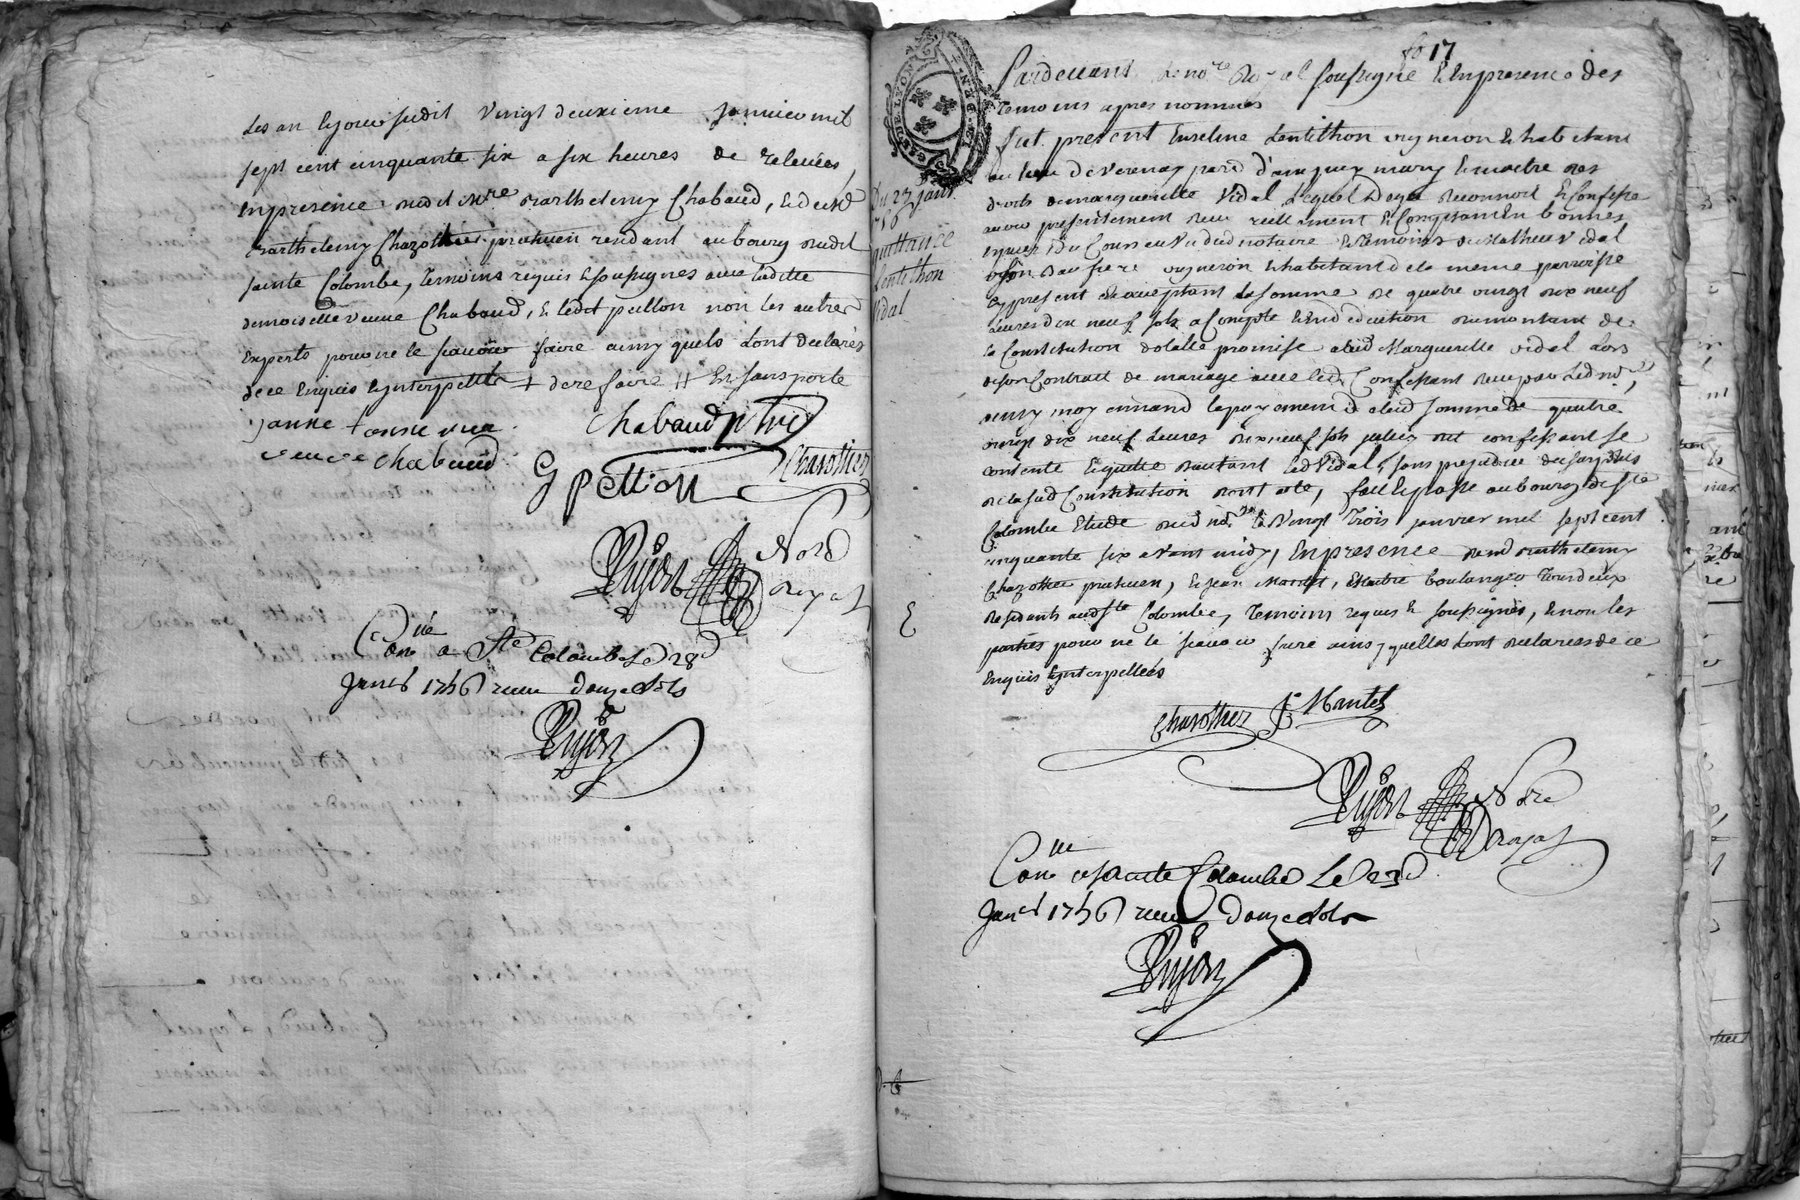 Les an & jour susdit vingt deuxieme janvier mil
sept cent cinquante six a six heures de relevées
en presence dud Mre Barthelemy Chabaud, & de sr
Barthelemy Chazottier pratitien residant au bourg dudit
sainte Colombe, temoins requis & soussignes avec laditte
demoiselle veuve Chabaud, & ledit pellion non les autres
experts pour ne le scavoir faire ainsy quils ont declarés
de ce enquis & interpellés + de ce faire ++
janne + anne
veuve chabaud
Chabaud ptre
Chazottier
G pellion
Pujon Nore
Royal
Conlle a Ste Colombe Le 28
Janer 1756 receu douze sols
Pujon
GEN DE LYON
fo 17
Du 23 janv
1756
quittance
Lentilhon
Vidal
Pardevant Le nore Royal soussigné & en presence des
temoins apres nommes
fut present Lentilhon vigneron & habitant
au lieu de Verenay parse d'ampuy mary & maitre des
droits de margueritte Vidal, Lequel De gré Reconnoit & Confesse
avoir presentement receu reellement & Comptamt En bonnes
especes de Cours au Vu dud notaire & temoins de Mathieu Vidal
son Beau frere vigneron & habitant de la meme parroisse
cy present & acceptant La somme de quatre vingt dix neuf
Livres dix neuf sols a Compte & en deduction du montant de
la Constitution dotalle promise a lad Margueritte vidal Lors
de son Contract de mariage avec led Confessant receu par Led nore,
ainsy moyennant le payement de lad somme de quatre
vingt dix neuf Livres dix neuf sols led confessant se
contente & quitte d'autant led Vidal, sans prejudice du surplus
de lasud Constitution dotale, fait & passé au bourg de Ste
Colombe Etude dud nore le Vingt trois janvier mil sept cent
cinquante six avant midy, En presence de Barthelemy
Chazottier pratitien, & jean Mantel, Maitre boulanger tous deux
Residants aud Ste Colombe, temoins requis & soussignes, & non les
parties pour ne le scavoir faire ainsy quelles ont declarées de ce
Enquis & interpellées
Chazottier J Mantel
Pujon Nore
Royal
Conlle a Sainte Colombe Le 23
Janer 1756 receu douze sols
Pujon